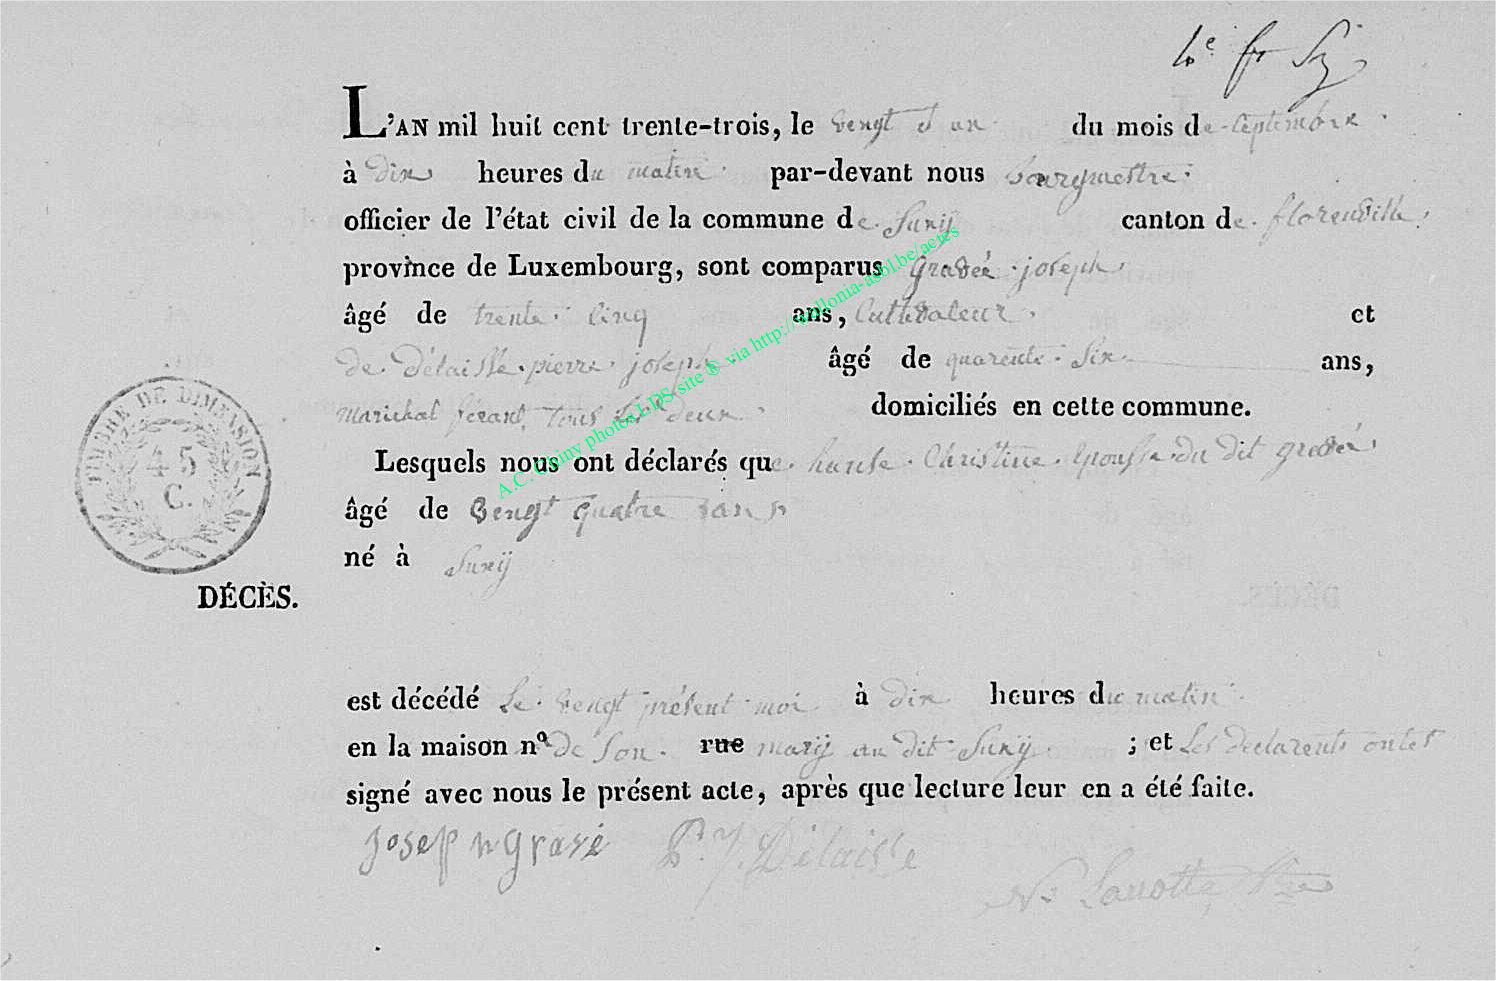 L'AN mil huit cent trente-trois, le vengt et un du mois de Septembre
à dix heures du matin par-devant nous bourgmestre
officier de l'état civil de la commune de Suxÿ canton de florenville
province de Luxembourg, sont comparus Gravée joseph
âgé de trente Cinq ans, Culltvateur et
de Délaissé pierre joseph âgé de quarente Six ans,
marichal férant, tous les deux domiciliés en cette commune.
Lesquels nous ont déclarés que Christine Epousse du dit gravée
âgé de Vengt quatre ans
né à Suxÿ
TIMBRE DE DIMENSION
45
C.
DÉCÈS.
est décédé Le vengt présent moi à dix heures du matin
en la maison nº de Son rue marÿ au dit Suxÿ ; et Les declarents ontes
signé avec nous le présent acte, après que lecture leur en a été faite.
Joseph Gravé P. J. Délaisse
Lanotte
A.C. Chiny photos LDS site @ via http://wallonia-asbl.be/actes